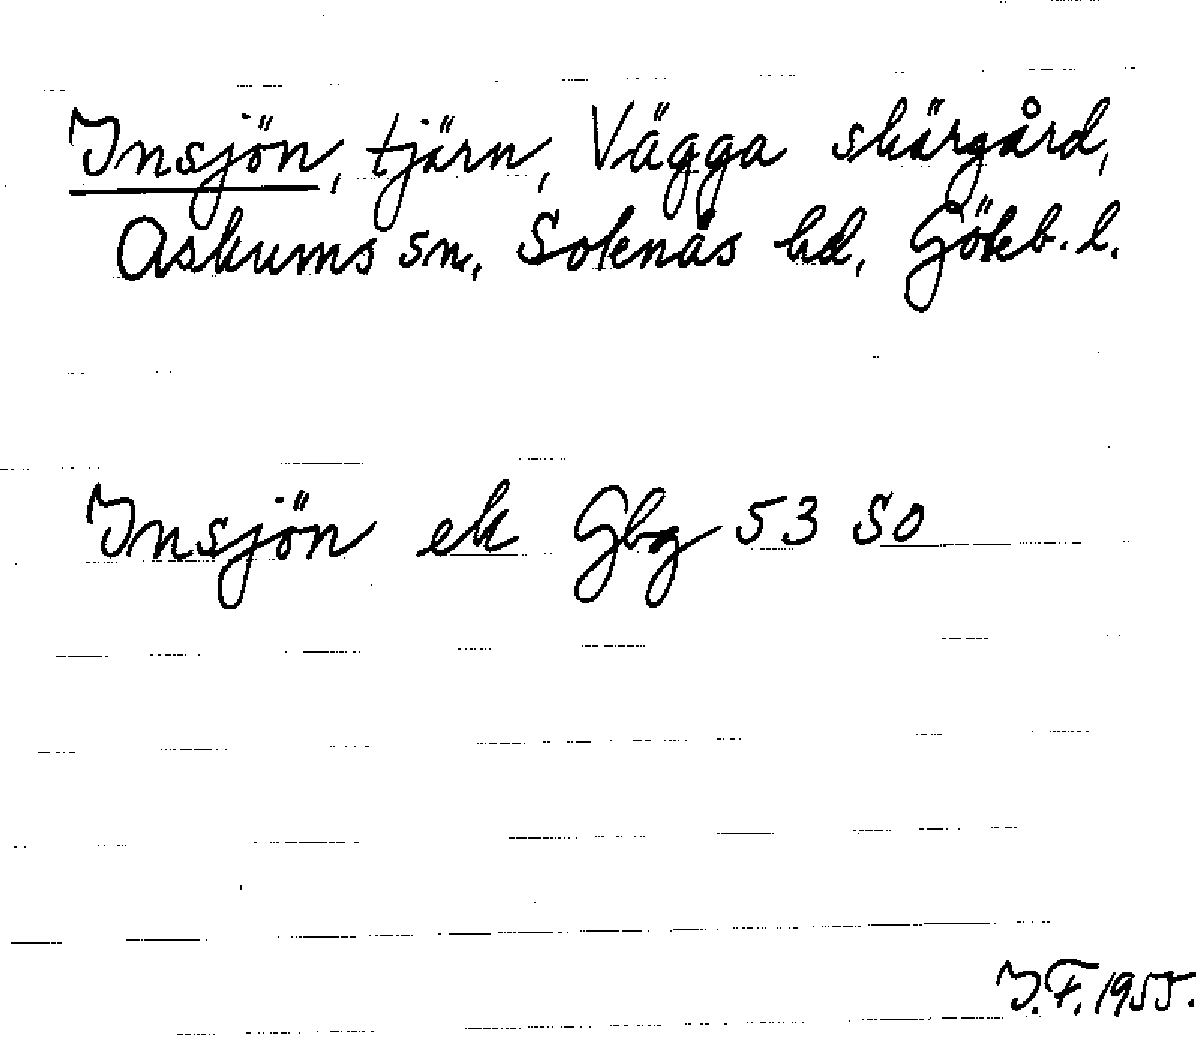 Insjön, tjärn, Vägga skärgård,
Askums sn, Sotenäs hd, Göteb. l.
Insjön ek Gbg 53 SO
I.F. 1955.